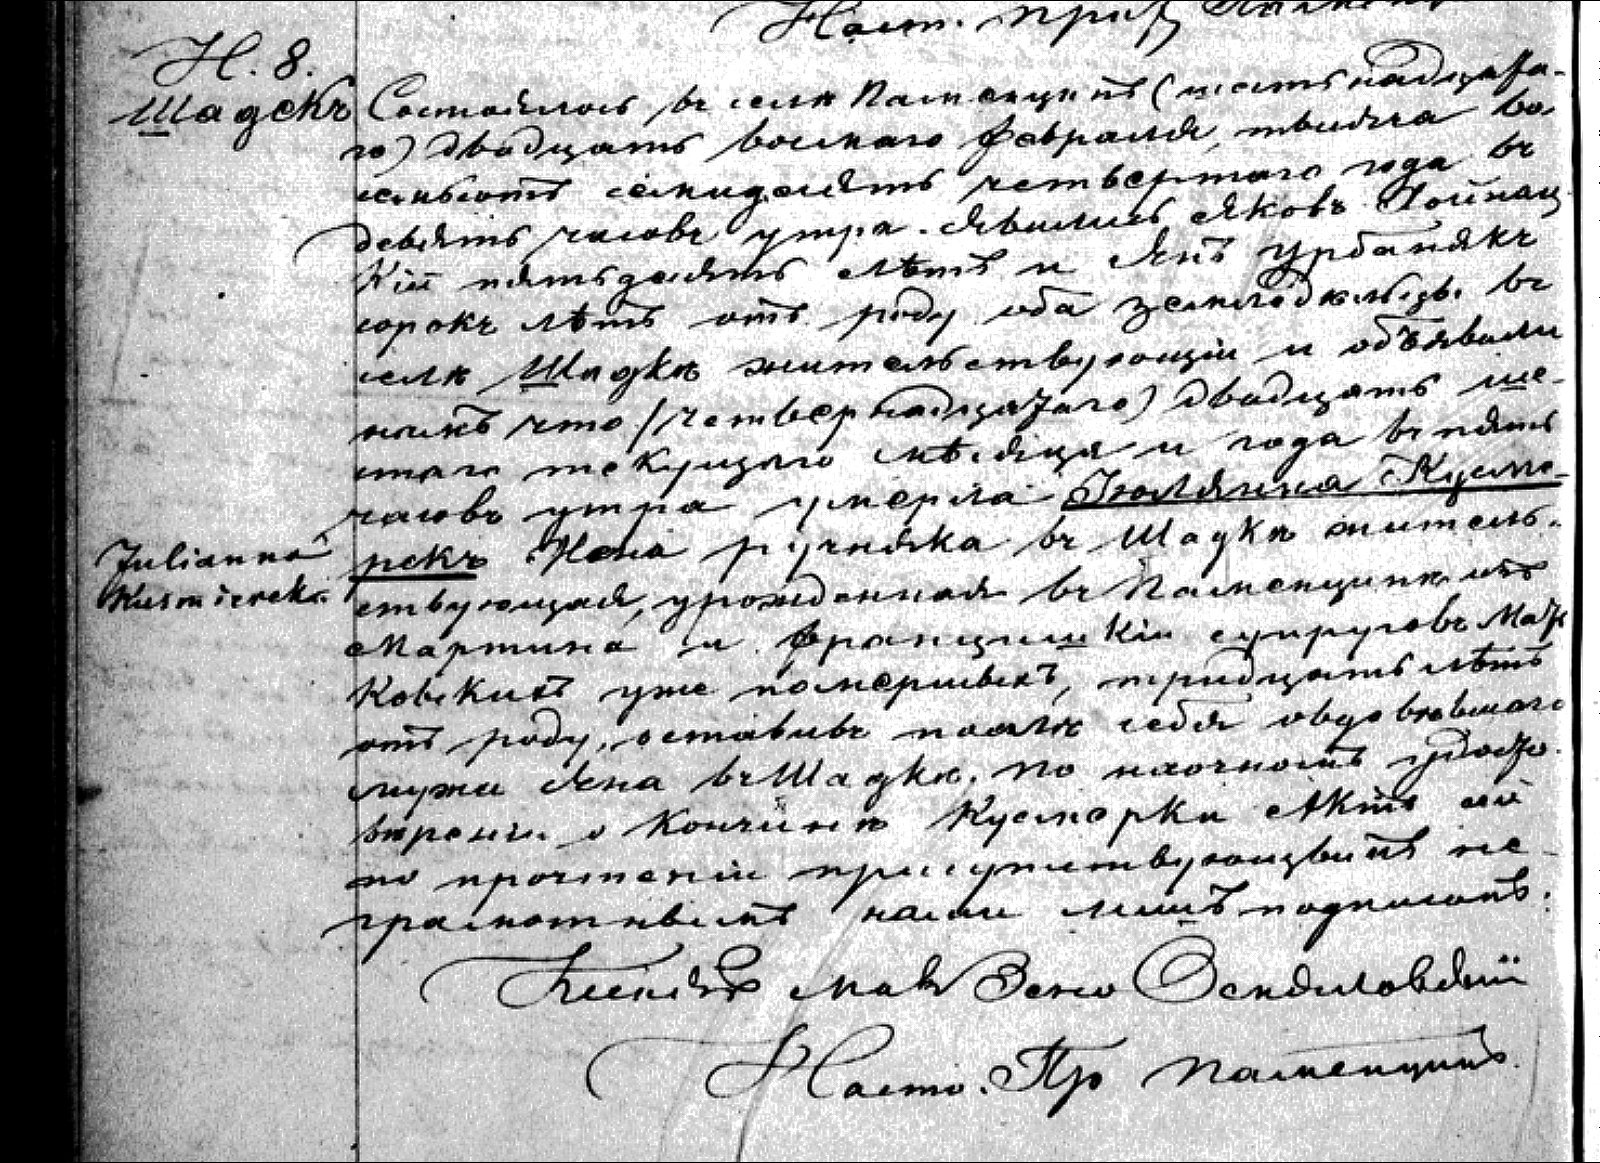 Наст. При
Н. 8.
Шадекъ
Состоялось въ селѣ Паменцинѣ (шестьнадцата-
го) двадцать восмаго февраля, тысяча во-
семьсотъ семидесять четвертаго года въ
девять часовъ утра. Явились Яковъ
кій пятьдесять лѣтъ и Янъ Урбанякъ
сорокъ лѣтъ отъ роду оба земледѣльцы въ
селѣ Шадкѣ жительствующіи и объявили
намъ что (четвернадцатаго) двадцать ше-
стаго текущаго мѣсяца и года въ пять
часовъ утра умерла Юлянна Кусме-
рекъ Жена ручняка въ Шадкѣ житель-
Julianna
Kusmierek
ствующая, урожденная въ Паменцинѣ изъ
Мартина и Францишкіи супруговъ Мать
ковскихъ уже помершыхъ, тридцать лѣтъ
отъ роду, оставивъ послѣ себя овдовѣвшаго
мужа Яна въ Шадкѣ. По наочномъ удосто-
вѣреніи о кончинѣ Кусмерки Актъ сей
по прочтеніи присутствующымъ не-
грамотнымъ нами лишъ подписанъ.
Ксендзъ Зено
Насто. Пр Паменцинъ.